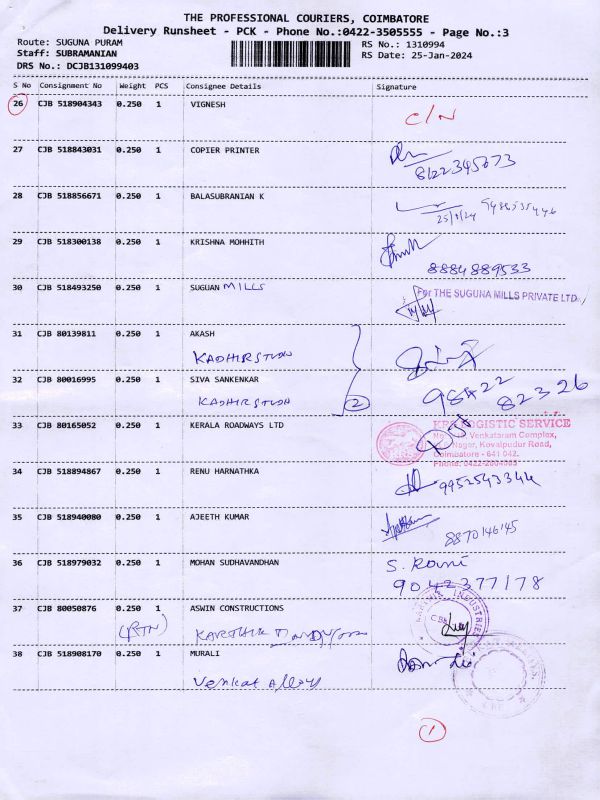 THE PROFESSIONAL COURIERS, COIMBATORE
Delivery Runsheet - PCK - Phone No.:0422-3505555 - Page No.:3
Route: SUGUNA PURAM
Staff: SUBRAMANIAN
DRS No.: DCJB131099403
RS No.: 1310994
RS Date: 25-Jan-2024
S No Consignment No Weight PCS Consignee Details Signature
26 CJB 518904343 0.250 1 VIGNESH C/N
27 CJB 518843031 0.250 1 COPIER PRINTER
8122345673
28 CJB 518856671 0.250 1 BALASUBRANIAN K
25/1/24
29 CJB 518300138 0.250 1 KRISHNA MOHHITH
8884889533
30 CJB 518493250 0.250 1 SUGUAN MILLS For THE SUGUNA MILLS PRIVATE LTD.,
31 CJB 80139811 0.250 1 AKASH
32 CJB 80016995 0.250 1 SIVA SANKENKAR
2
98422 82326
33 CJB 80165052 0.250 1 KERALA ROADWAYS LTD LOGISTIC SERVICE
Venkataram Complex,
Nagar, Kovalpudur Road,
Coimbatore - 641 042.
Phone: 0422-2604985
34 CJB 518894867 0.250 1 RENU HARNATHKA 9952543344
35 CJB 518940080 0.250 1 AJEETH KUMAR
8870146145
36 CJB 518979032 0.250 1 MOHAN SUDHAVANDHAN S. Rani
9042377178
37 CJB 80050876 0.250 1 ASWIN CONSTRUCTIONS INDUSTRIES
(RTN)
38 CJB 518908170 0.250 1 MURALI
Venkat Alloys
1